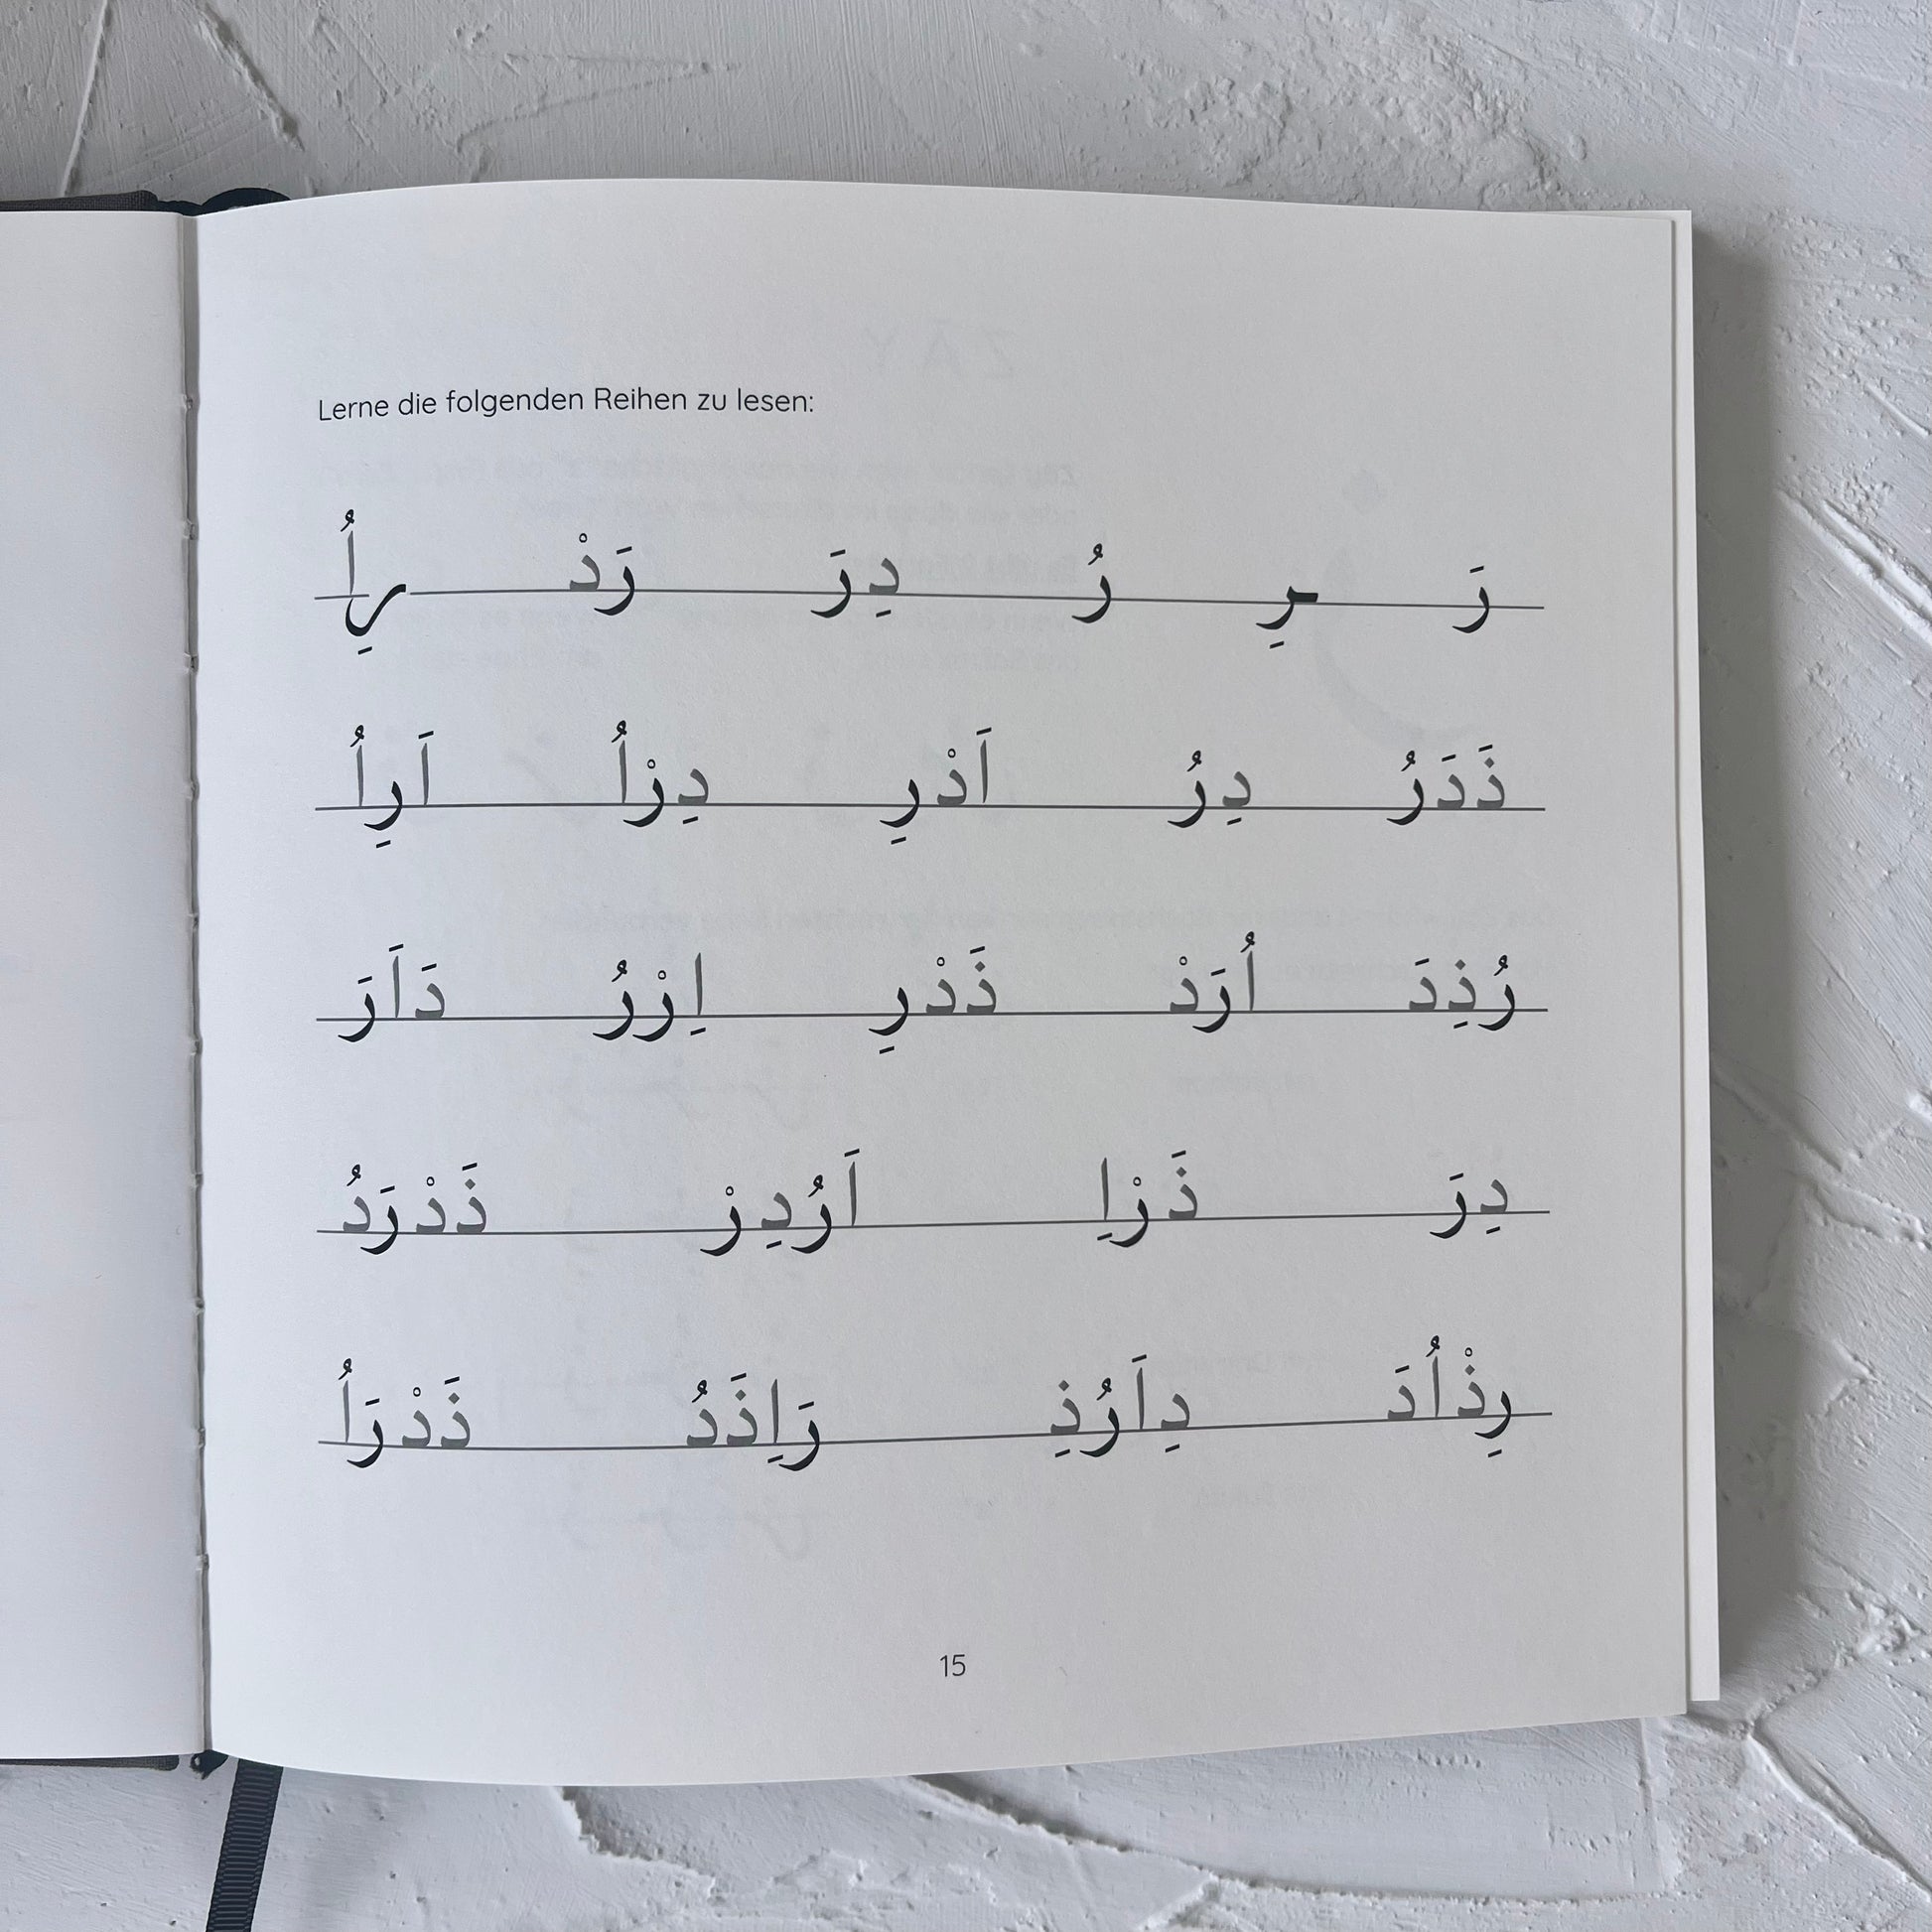 Lerne die folgenden Reihen zu lesen:
رَ ـرِ رُ دِرَ رَدْ رِاُ
ذَدَرُ دِرُ اَدْرِ دِرْاُ اَرِاُ
رُذِدَ اُرَدْ ذَدْرِ اِرْرُ دَاَرَ
دِرَ ذَرْاِ اَرُدِرْ ذَدْرَدُ
رِذْاُدَ دِاَرُذِ رَاِذَدُ ذَدْرَاُ
15